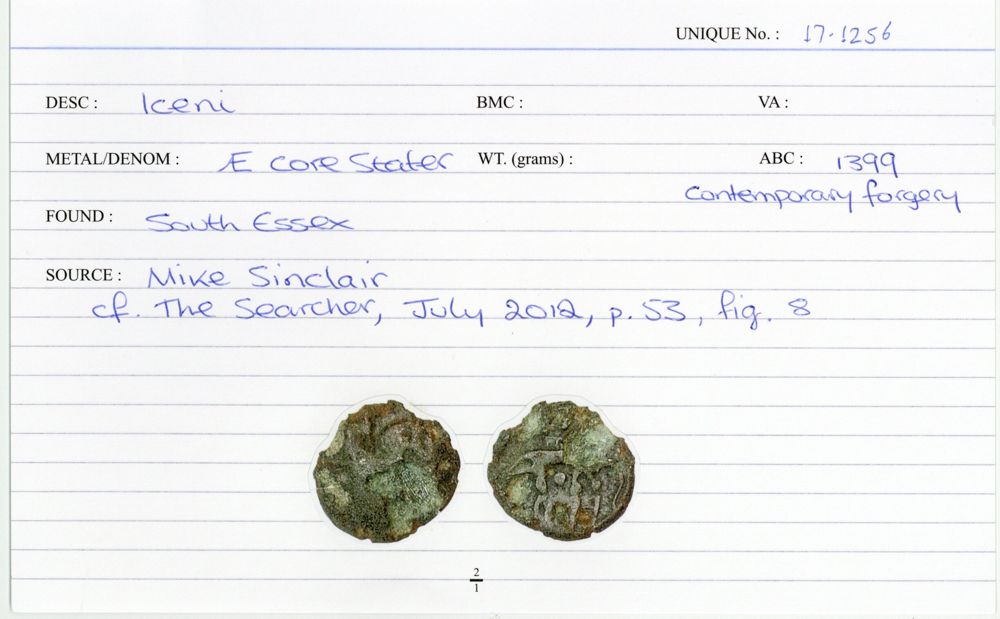 UNIQUE No. : 17.1256
DESC : Iceni BMC : VA :
METAL/DENOM : Æ core Stater WT. (grams) : ABC : 1399
contemporary forgery
FOUND : South Essex
SOURCE : Mike Sinclair
cf. The Searcher, July 2012, p. 53, fig. 8
2
1